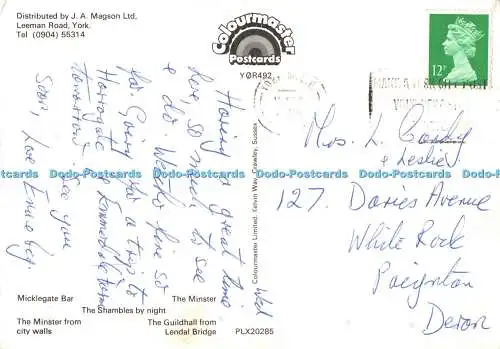 Distributed by J. A. Magson Ltd,
Leeman Road, York.
Tel (0904) 55314
Colourmaster
Postcards
YØR492
12P
Wed
Having a great time
here, so much to see
& do. Weather fine so
far. Going for a trip to
Harrogate
tomorrow. See you
Soon, Love
Mrs. L.
& Leslie
127. Davies Avenue
White Rock
Paignton
Devon
Colourmaster Limited, Kelvin Way, Crawley, Sussex.
Micklegate Bar
The Minster
The Shambles by night
The Minster from
city walls
The Guildhall from
Lendal Bridge
PLX20285
Dodo-Postcards Dodo-Postcards Dodo-Postcards Dodo-Postcards